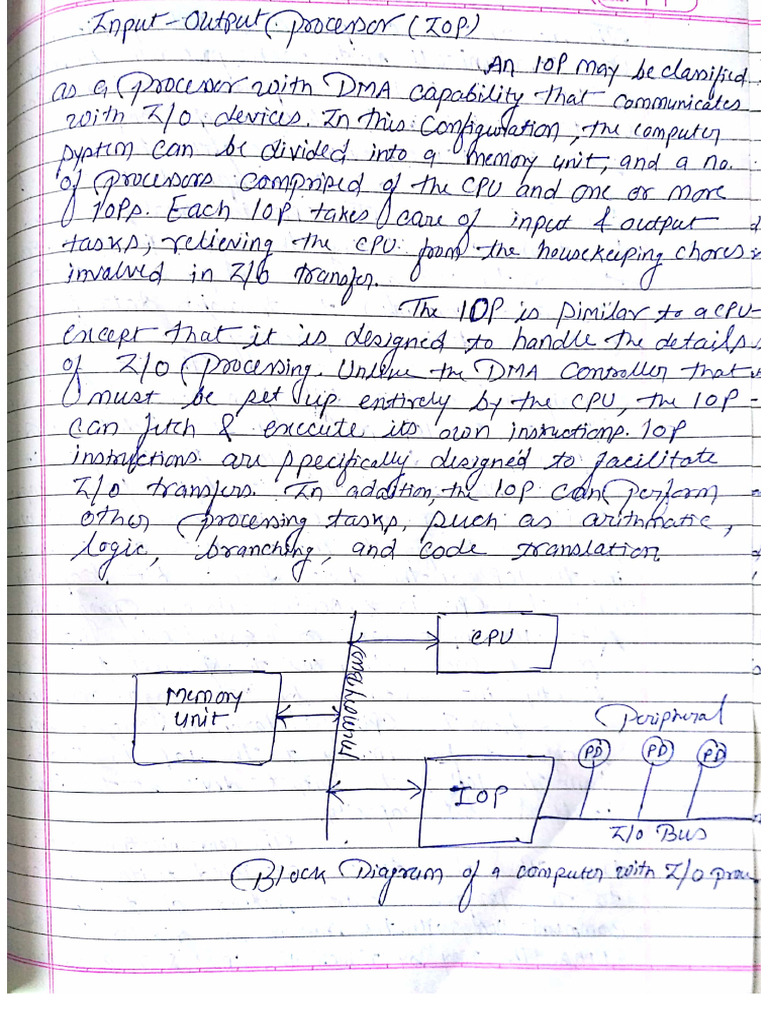 Input-Output Processor (IOP)
An IOP may be classified
as a processor with DMA capability that communicates
with I/O devices. In this configuration, the computer
system can be divided into a memory unit, and a no.
of processors comprised of the CPU and one or more
IOPs. Each IOP takes care of input & output
tasks, relieving the CPU from the housekeeping chores
involved in I/O transfer.
The IOP is similar to a CPU
except that it is designed to handle the details
of I/O processing. Unlike the DMA controller that
must be set up entirely by the CPU, the IOP
can fetch & execute its own instructions. IOP
instructions are specifically designed to facilitate
I/O transfers. In addition, the IOP can perform
other processing tasks, such as arithmatic,
logic, branching, and code translation
CPU
Memory
unit
Peripheral
PD PD PD
IOP
I/O Bus
Block Diagram of a computer with I/O